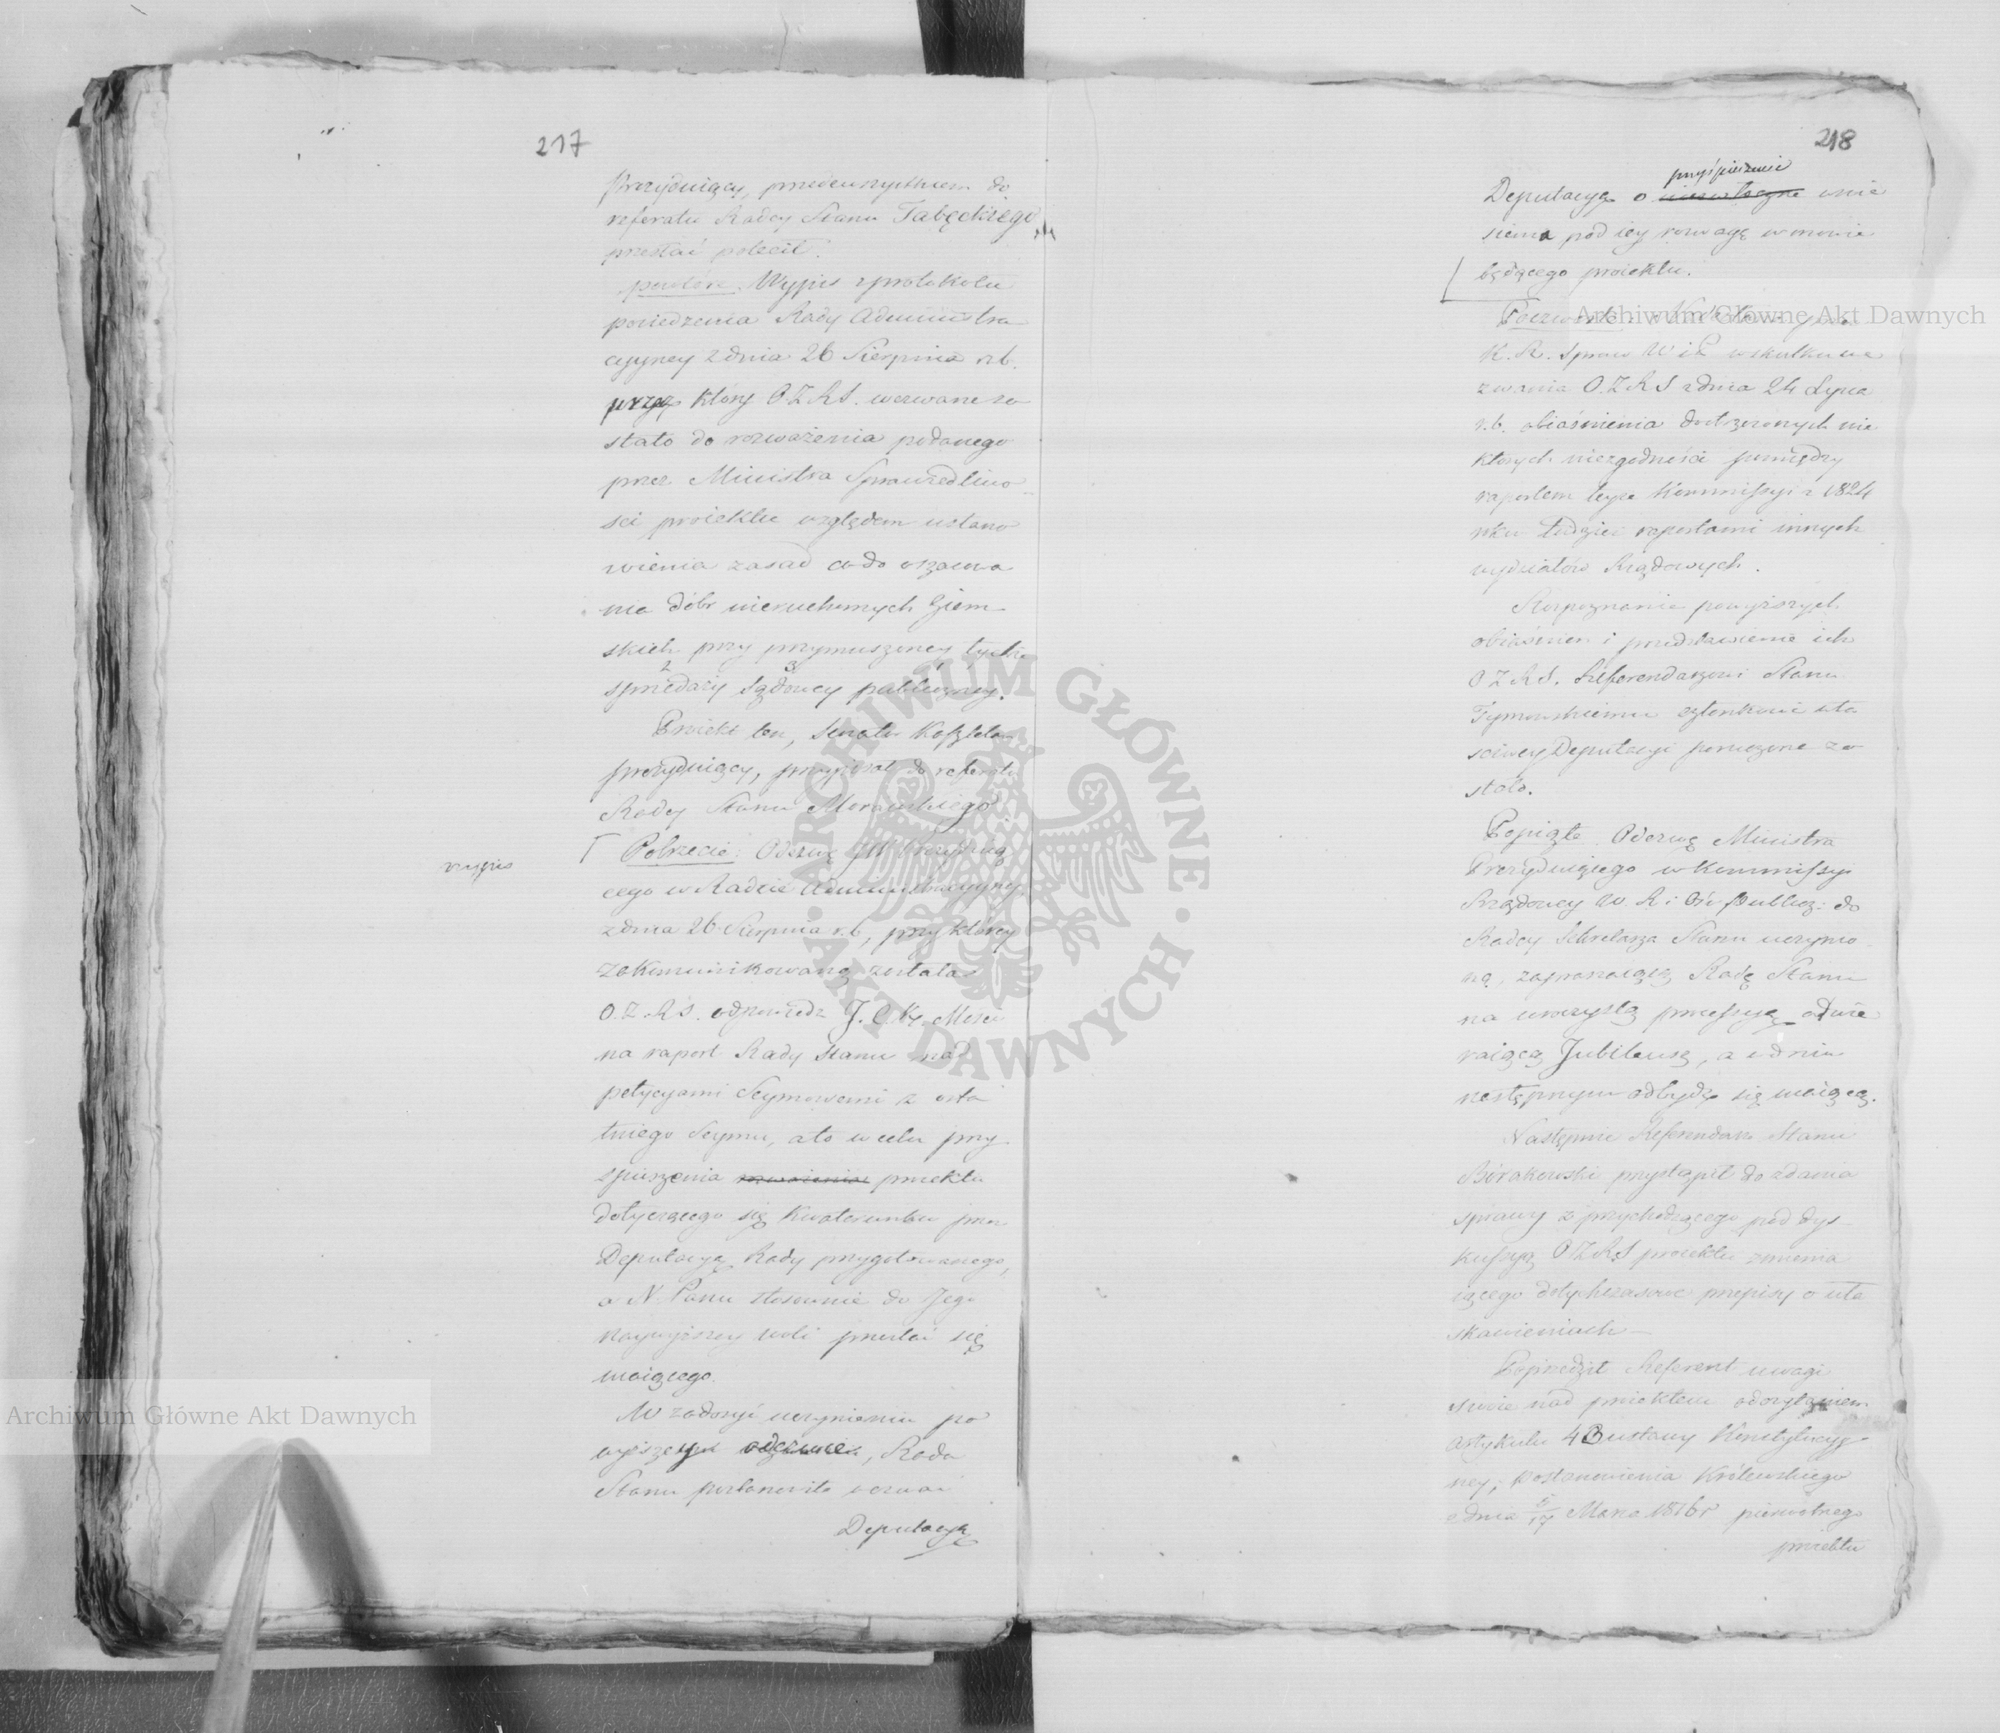 217
Prezyduiący, przedewszystkiem do
referatu Radcy Stanu Tabęckiego
przesłać polecił.
powtóre. Wypis z protokołu
posiedzenia Rady Administra
cyyney z dnia 26 Sierpnia r.b.
przez który O.Z.R.S. wezwane zo
stało do rozważenia podanego
przez Ministra Sprawiedliwo
ści proiektu względem ustano
wienia zasad co do oszacowa
nia dóbr nieruchomych Ziem
skich przy przymuszoney tychże
2 3 1
sprzedaży Sądowey publiczney.
Proiekt ten, Senator Kasztelan
prezyduiący, przypisał do referatu
Radcy Stanu Morawskiego
wypis
Potrzecie: Odezwę JW Prezydują
cego w Radzie Administracyyney
z dnia 26 Sierpnia r.b, przy którey
zakomunikowaną została
O.Z.R.S. odpowiedź J.C.K. Mości
na raport Rady Stanu nad
petycyami Seymowemi z osta
tniego Seymu, a to w celu przy
spieszenia rozważenia proiektu
dotyczącego się kwaterunku przez
Deputacyą Rady przygotowanego,
a N. Panu stosownie do Jego
naywyższey woli przesłać się
maiącego.
W zadosyć uczynieniu po
wyższey odezwie, Rada
Stanu postanowiła wezwać
Deputacyą
218
przyśpieszenie
Deputacyą o niezwłoczne wnie
sienia pod iey rozwagę w mowie
będącego proiektu.
Poczwarte:
K.R. Spraw W i P w skutku we
zwania O.Z.R.S z dnia 24 Lipca
r.b. obiaśnienia dostrzeżonych nie
których niezgodności pomiędzy
raportem teyże Kommissyi z 1824
roku tudzież raportami innych
wydziałów Rządowych.
Rozpoznanie powyższych
obiaśnień i przedstawienie ich
O.Z.R.S. Referendarzowi Stanu
Tymowskiemu członkowi wła
ściwey Deputacyi poruczone zo
stało.
Popiąte Odezwę Ministra
Prezyduiącego w Kommissyi
Rządowey W.R. i Ośw Publicz: do
Radcy Sekretarza Stanu uczynio
ną, zapraszaiącą Radę Stanu
na uroczystą processyą otwie
raiącą Jubileusz, a w dniu
następnym odbydź się maiącą.
Następnie Referendarz Stanu
Bórakowski przystąpił do zdania
sprawy z przychodzącego pod dys
kussyą O.Z.R.S proiektu zmienia
iącego dotychczasowe przepisy o uła
skawieniach
Poprzedził Referent uwagi
swoie nad proiektem odczytaniem
Artykułu 43 ustawy Konstytucyy
ney, postanowienia Królewskiego
z dnia 5/17 Marca 1816 r pierwotnego
proiektu
Archiwum Główne Akt Dawnych
Archiwum Główne Akt Dawnych
ARCHIWUM GŁÓWNE
AKT DAWNYCH